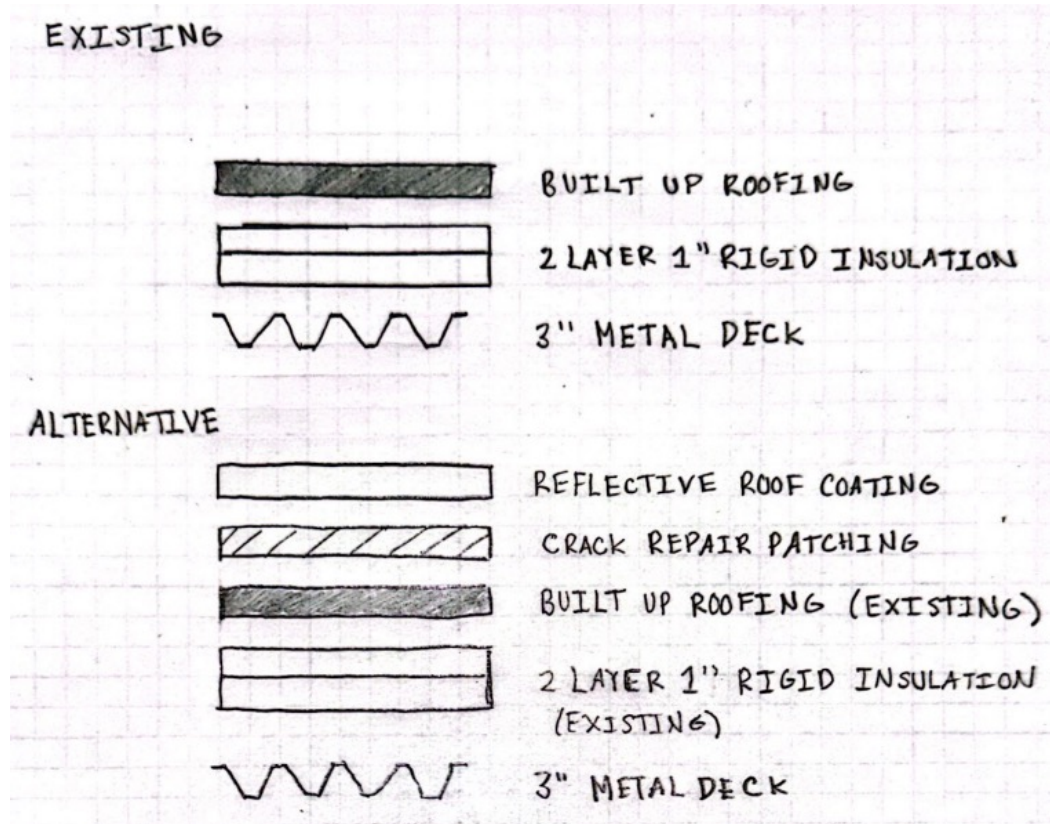 EXISTING
BUILT UP ROOFING
2 LAYER 1" RIGID INSULATION
3" METAL DECK
ALTERNATIVE
REFLECTIVE ROOF COATING
CRACK REPAIR PATCHING
BUILT UP ROOFING (EXISTING)
2 LAYER 1" RIGID INSULATION
(EXISTING)
3" METAL DECK